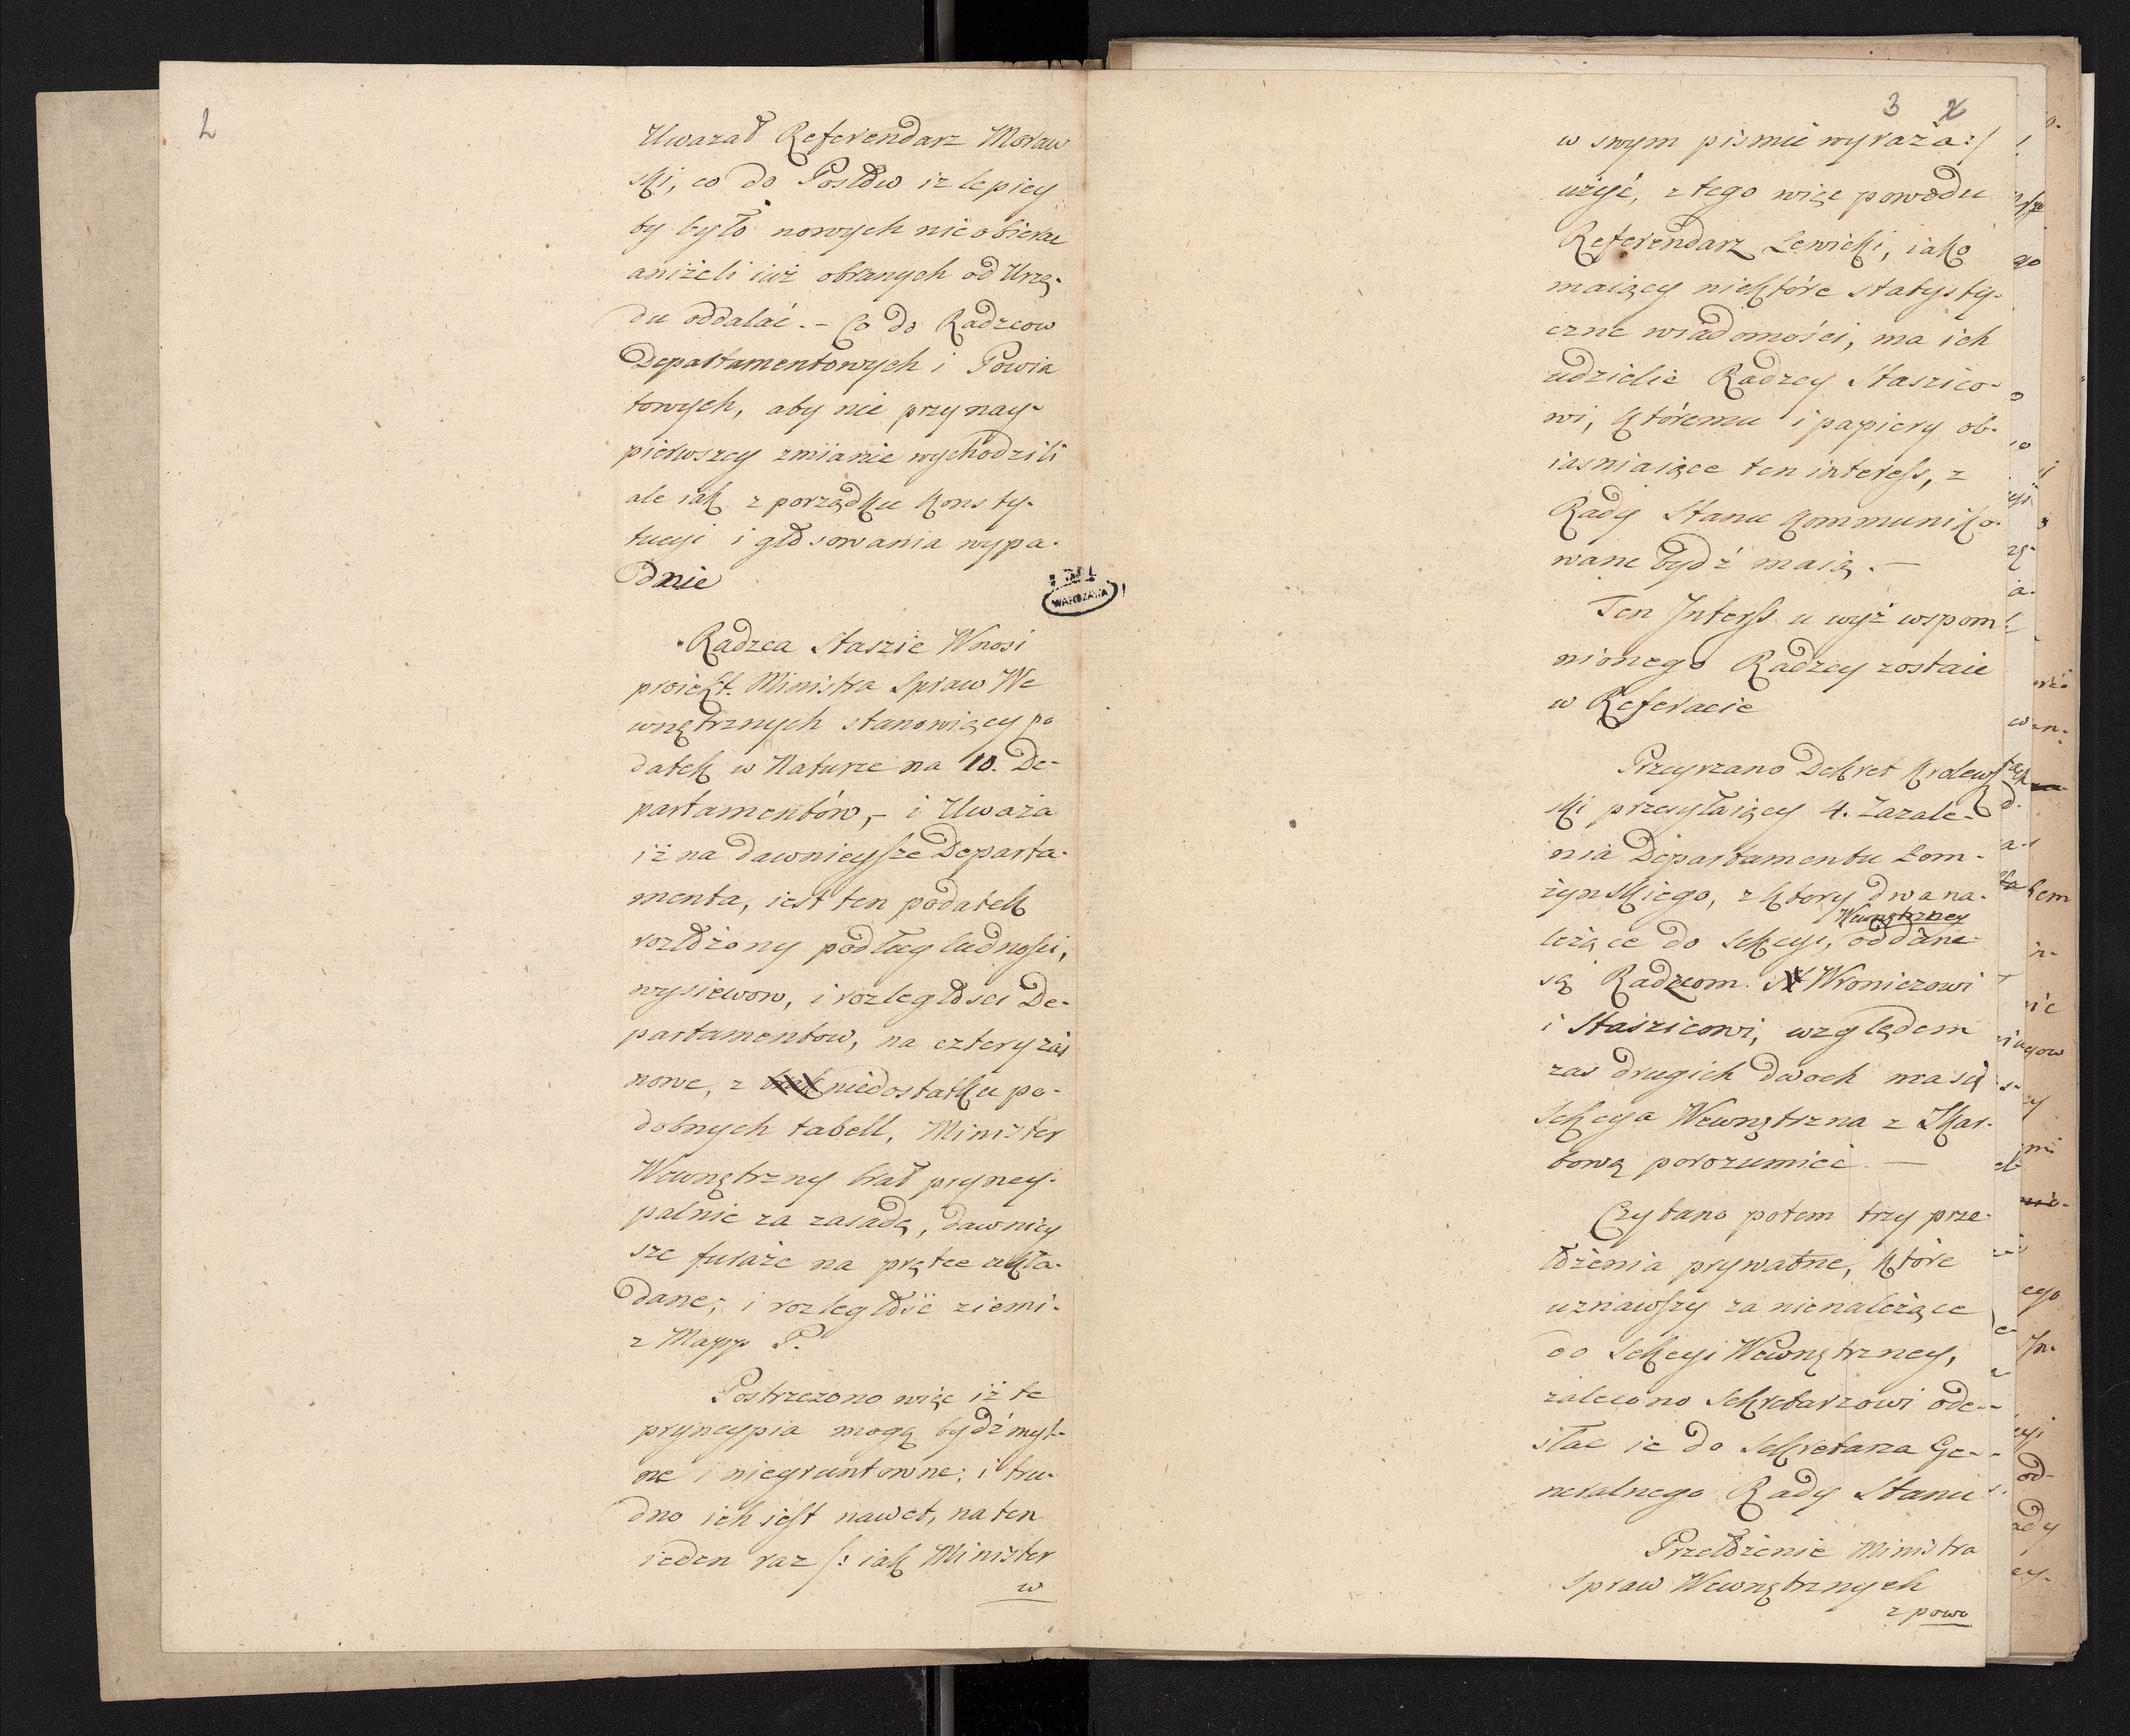 2
Uważał Referendarz Moraw
ski, co do Posłow iz lepiey
by było nowych nie obierac
aniżeli iuż obranych od Urzę-
du oddalać. - Co do Radzcow
Departamentowych i Powia
towych, aby nie przy nay-
pierwszey zmianie wychodzili
ale iak z porządku konsty-
tucyi i głosowania wypa-
dnie
WARSZAWA
Radzca Staszic Wnosi
proiekt Ministra Spraw We
wnętrznych stanowiący po
datek w Naturze na 10. De-
partamentów, - i Uważa
iż na dawnieysze Departa-
menta, iest ten podatek
rozłożony podług ludności,
wysiewow, i rozległosci De-
partamentow, na cztery zaś
nowe, z niedostatku po-
dobnych tabell, Minister
Wewnętrzny brał pryncy-
palnie za zasadę, dawniey
sze furaże na prętce ukła-
dane; i rozległość ziemi-
z Mapp P.
Postrzeżono więc iż te
pryncypia mogą bydź myl-
ne i niegruntowne; i tru-
dno ich iest nawet, na ten
ieden raz /: iak Minister
w
3
w swym pismie wyraża :/
użyć, z tego więc powodu
Referendarz Lewicki, iako
maiący niektóre statysty-
czne wiadomości, ma ich
udzielic Radzcy Staszico-
wi, któremu i papiery ob-
iasniaiące ten interess, z
Rady Stanu kommuniko-
wane bydź maią. -
Ten Interss u wyż wspom
nionego Radzcy zostaie
w Referacie
Przeyrzano Dekret krolews
ki przesyłaiący 4. Zazale-
nia Departamentu Łom-
żynskiego, z ktory dwa na-
leżące do sekcyi, oddane
Wewnętrzney
są Radzcom Wroniczowi
i Staszicowi, względem
zas drugich dwoch ma się
Sekcya Wewnętrzna z Skar-
bową porozumieć. -
Czytano potem trzy prze-
łożenia prywatne, które
uznawszy za nienależące
do Sekcyi Wewnętrzney,
zalecono Sekretarzowi ode-
słac ie do Sekretarza Ge-
neralnego Rady Stanu
Przełożenie Ministra
Spraw Wewnętrznych
z powo